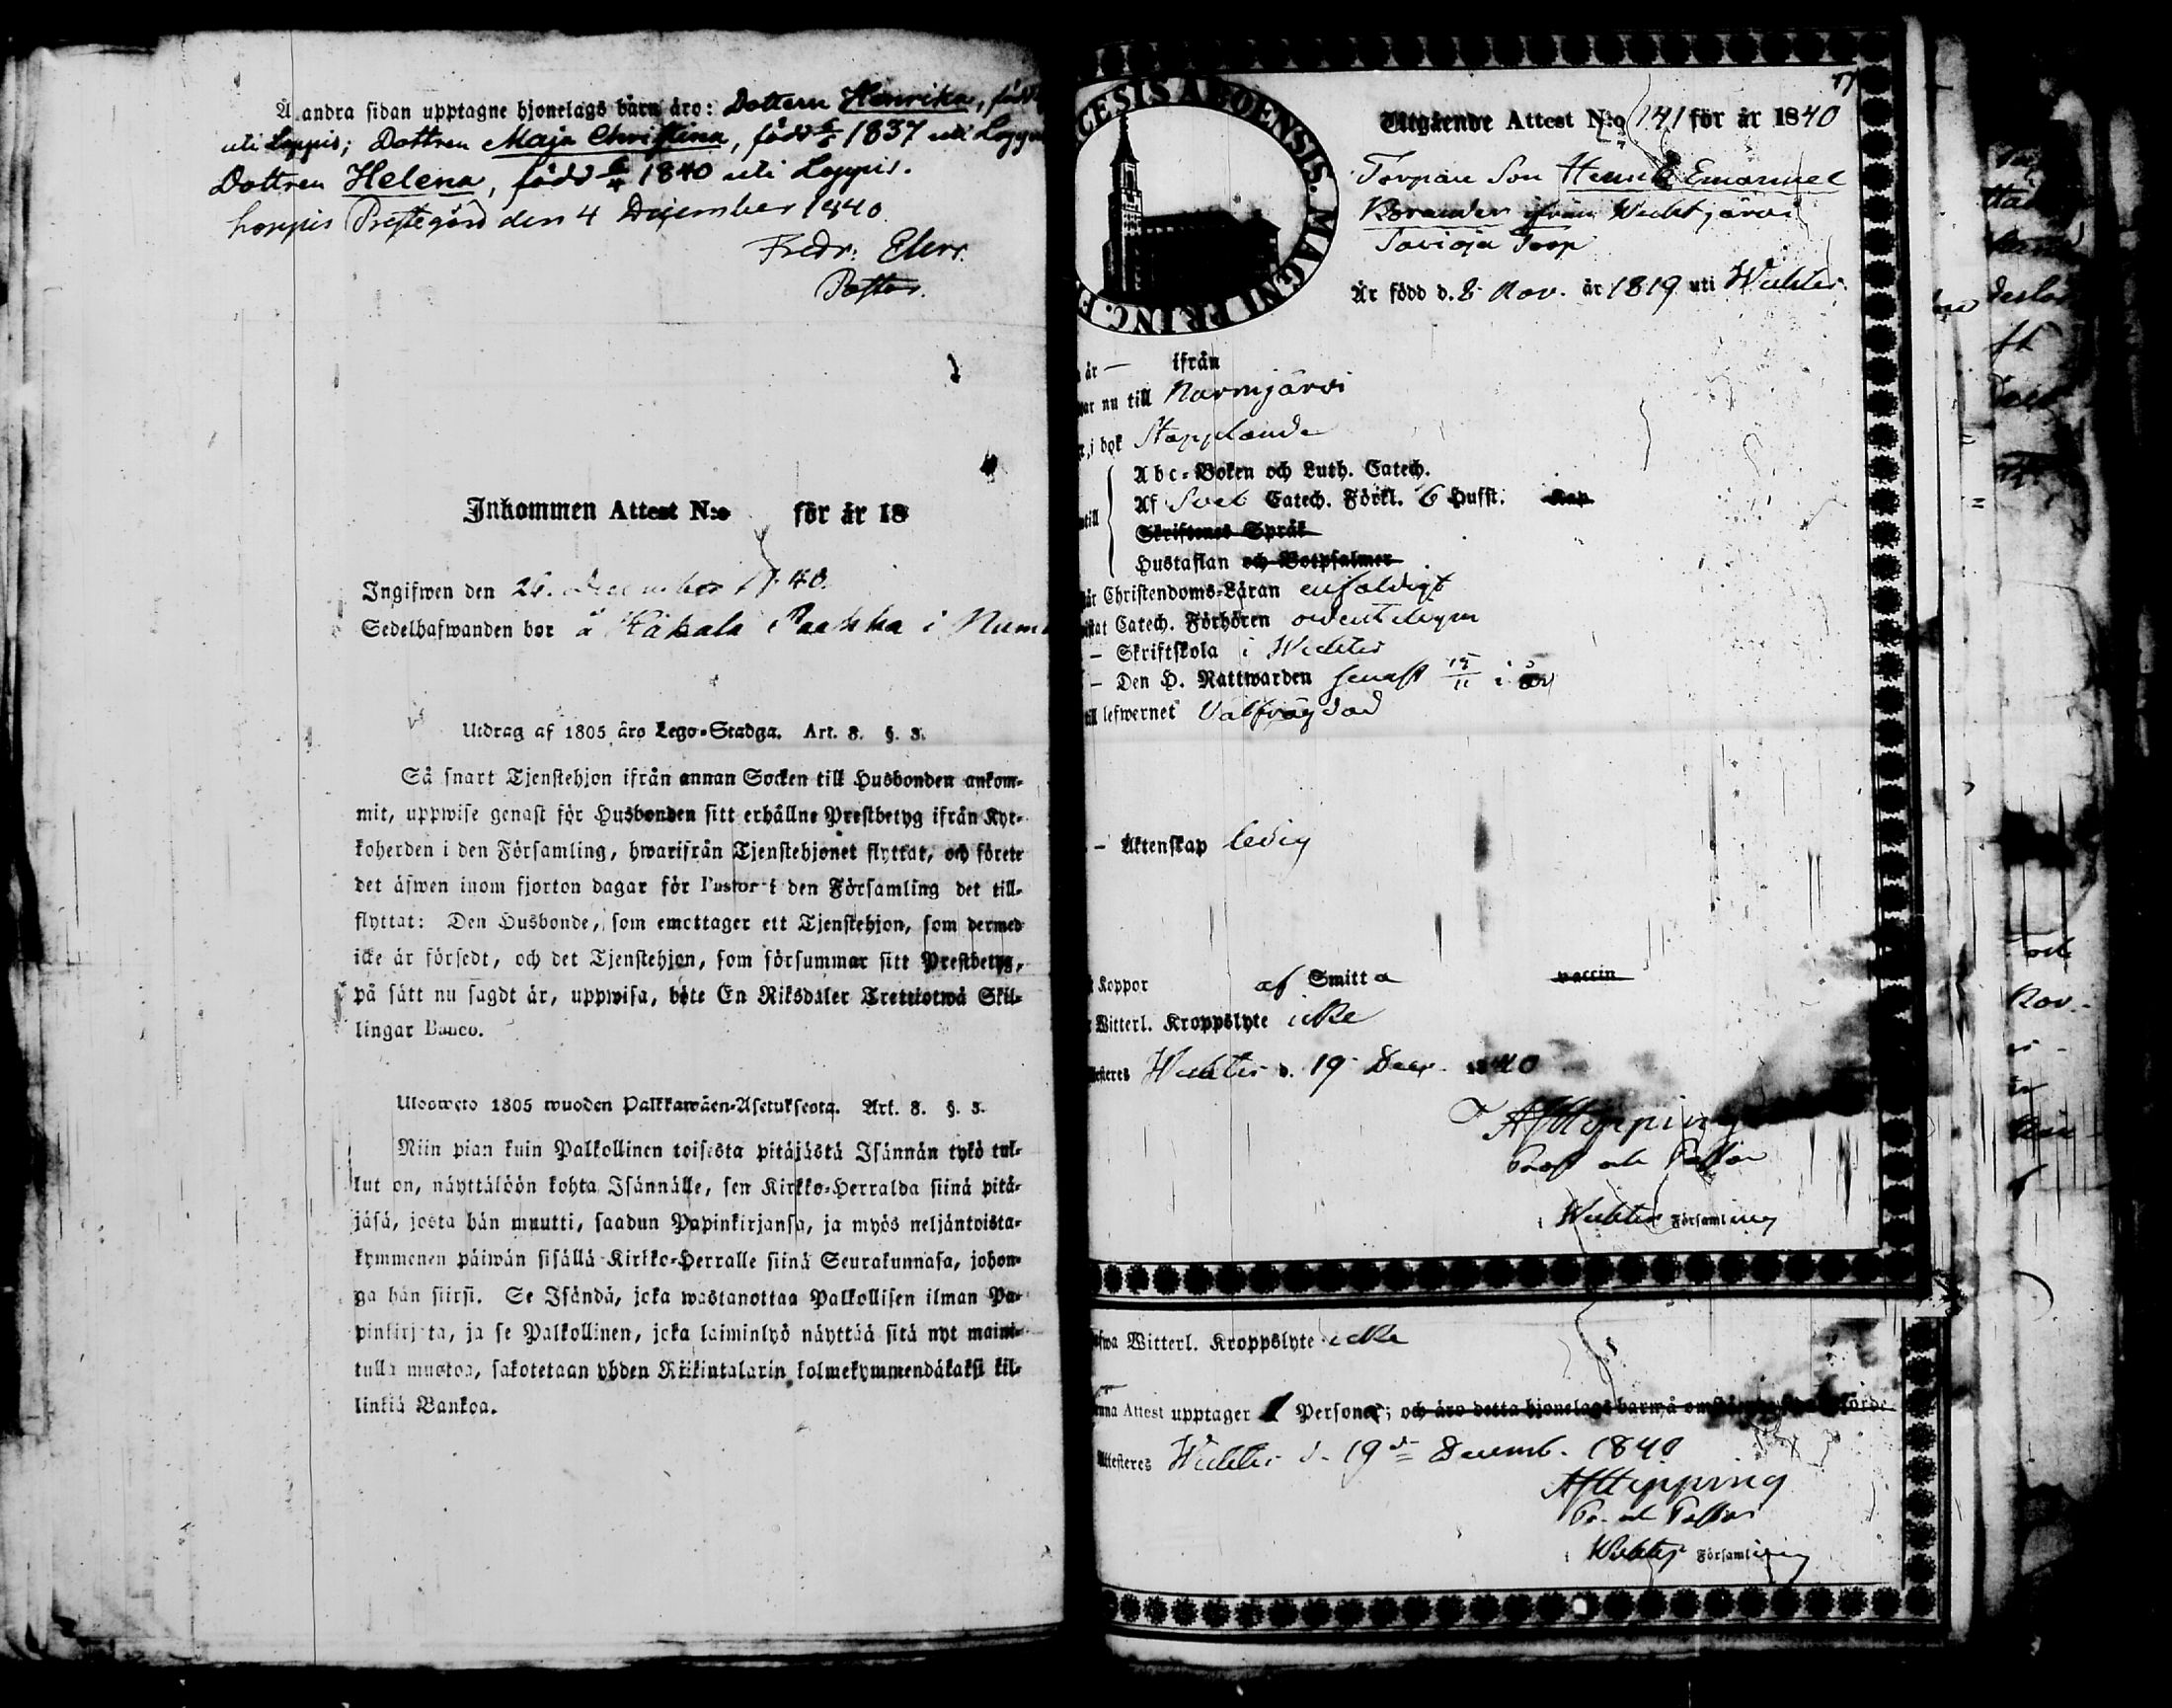 Å andra sidan upptagne hjonelags barn äro: Dottern Henrika, född
uti Loppis; Dottren Maja Christina, född 1837 uti Loppis
Dottren Helena, född 6/4 1840 uti Loppis.
Loppis Prestegård den 4 December 1840.
Fredr: Elerr.
Pastor.
Inkommen Attest N:o för år 18
Ingifwen den 26. December 1840.
Sedelhafwanden bor å Räkälä Paakka i Num
Utdrag af 1805 års Lego-Stadga. Art. 8. §. 3.
Så snart Tjenstehjon ifrån annan Socken till Husbonden ankom-
mit, uppwise genast för Husbonden sitt erhållne Prestbetyg ifrån Kyr-
koherden i den Församling, hwarifrån Tjenstehjonet flyttat, och förete
det äfwen inom fjorton dagar för Pastor i den Församling det till-
flyttat: Den Husbonde, som emottager ett Tjenstehjon, som dermed
icke är försedt, och det Tjenstehjon, som försummar sitt Prestbetyg,
på sätt nu sagdt är, uppwisa, böte En Riksdaler Trettiotwå Skil-
lingar Banco.
Ulosweto 1805 wuoden Palkkawäen-Asetuksesta. Art. 8. §. 3.
Niin pian kuin Palkollinen toisesta pitäjästä Isännän tykö tul-
lut on, näyttälöön kohta Isännälle, sen Kirkko-Herralda siinä pitä-
jäsä, josta hän muutti, saadun Papinkirjansa, ja myös neljäntoista-
kymmenen päiwän sisällä Kirkko-Herralle siinä Seurakunnasa, johon-
ga hän siirsi. Se Isändä, joka wastanottaa Palkollisen ilman Pa-
pinkirjata, ja se Palkollinen, joka laiminlyö näyttää sitä nyt maini-
tulla muotoa, sakotetaan yhden Riikintalarin kolmekymmendäkaksi kil-
linkiä Bankoa.
CESIS ABOENSIS. MAGNI PRINC. F
Utgående Attest N:o 141 för år 1840
Torpare Son Henrik Emanuel
Borander ifrån Wichtjärvi
Savioja Torp
Är född d. 8 Nov. år 1819 uti Wichtis.
år — ifrån
nu till Nurmjärvi
i bok Stapplande
Abc-Boken och Luth. Catech.
Af Sveb Catech. Förkl. 6 Hufst. Kap
Skriftenes Språk
Hustaflan och Botpsalmer
Christendoms-Läran enfaldigt
Catech. Förhören ordenteligen
— Skriftskola i Wichtis
— Den H. Nattwarden senast 15/11 i år
till lefwernet Välfrägdad
— Äktenskap ledig
Koppor af Smitta vaccin
Witterl. Kroppslyte icke
Wichtis d. 19 Decr. 1840
AJHipping
Prost och Pastor
i Wichtis Församling
Witterl. Kroppslyte icke
Attest upptager 1 Person; och äro detta hjonelags barn å omstående sida införde
Attesteres Wichtis d. 19de Decemb. 1840
AJHipping
Pr. och Pastor
i Wichtis Församling